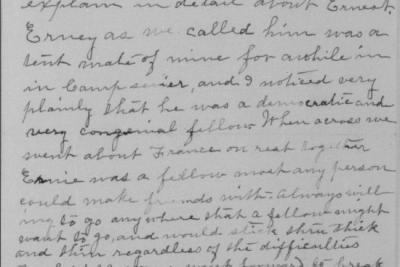 explain in detail about Ernest.
Erney as we called him was a
tent mate of mine for awhile in
in Camp sevier, and I noticed very
plainly that he was a democratic and
very congenial fellow. When across we
went about France on rest together
Ernie was a fellow most any person
could make friends with. Always will
ing to go anywhere that a fellow might
want to go, and would stick thru thick
and thin regardless of the difficulties